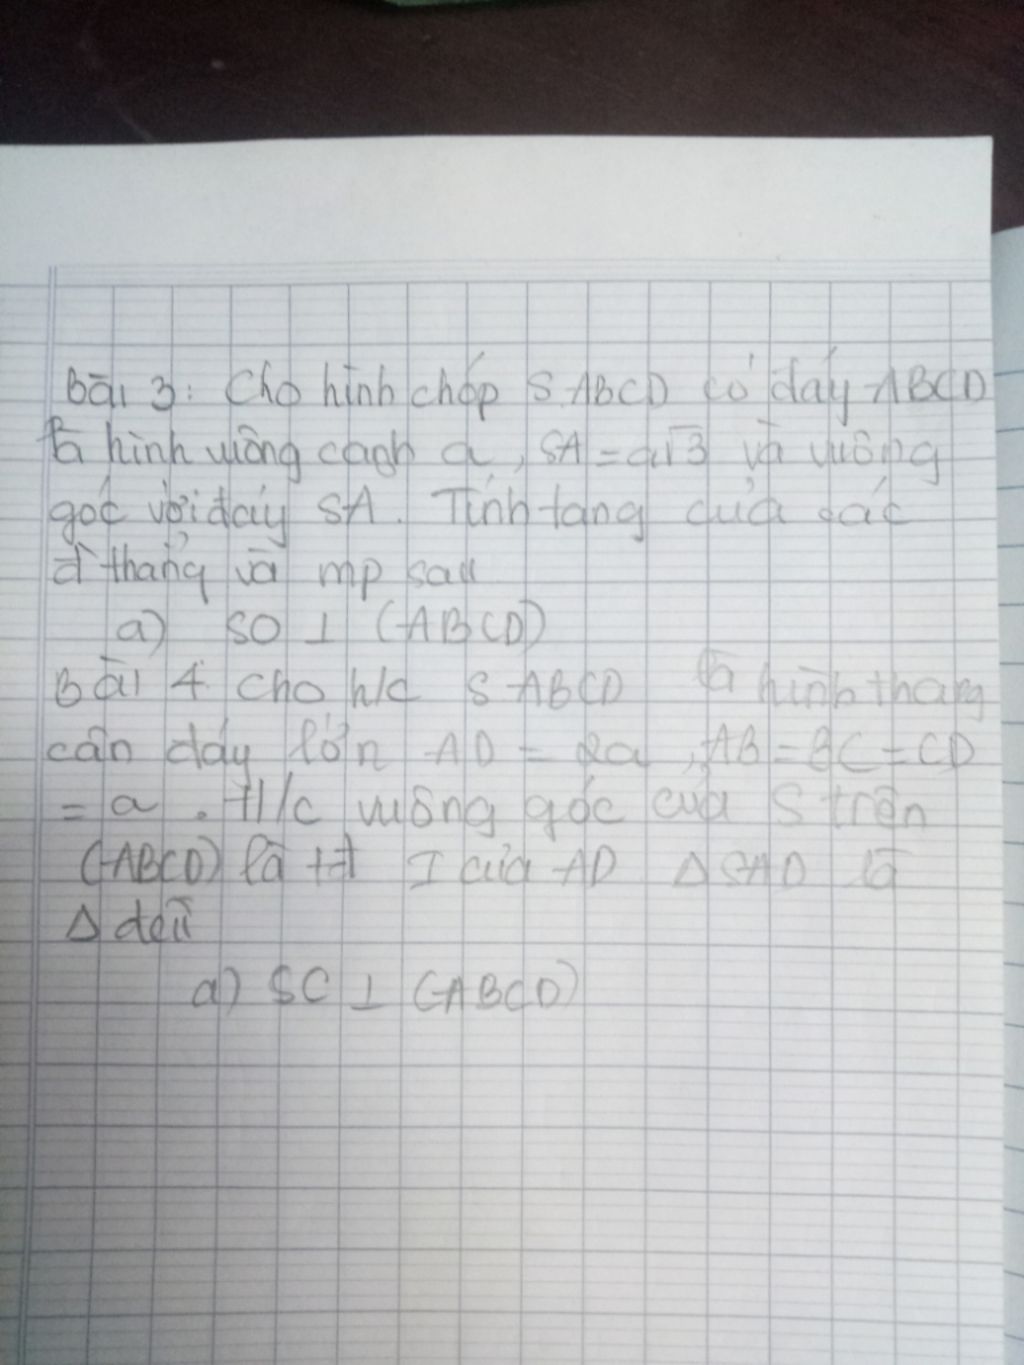 Bài 3: Cho hình chóp S.ABCD có đáy ABCD
là hình vuông cạnh a, SA = a√3 và vuông
góc với đáy SA. Tính tang của các
đ thẳng và mp sau
a) SO ⊥ (ABCD)
Bài 4. Cho h/c S ABCD là hình thang
cân đáy lớn AD = 2a, AB = BC = CD
= a. H/c vuông góc của S trên
(ABCD) là tđ I của AD Δ SAD là
Δ đều
a) SC ⊥ (ABCD)